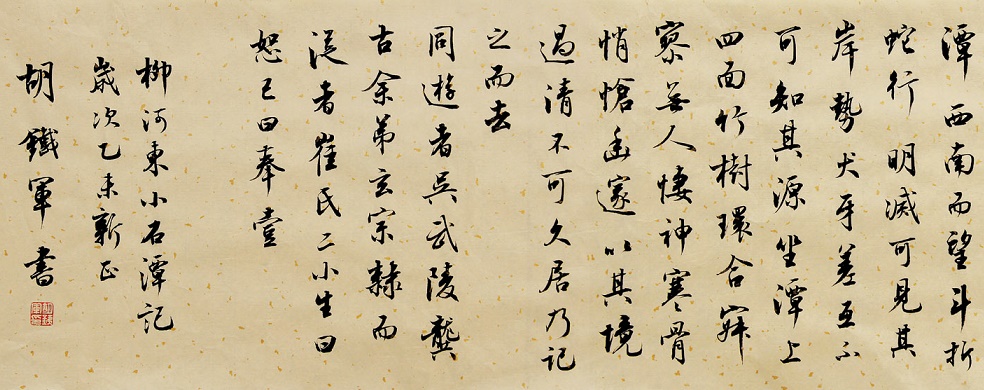 潭西南而望斗折
蛇行明滅可見其
岸勢犬牙差互不
可知其源坐潭上
四面竹樹環合寂
寥無人悽神寒骨
悄愴幽邃以其境
過清不可久居乃記
之而去
同遊者吳武陵龔
古余弟玄宗隸而
從者崔氏二小生曰
恕己曰奉壹
柳河東小石潭記
歲次乙未新正
胡鐵軍書